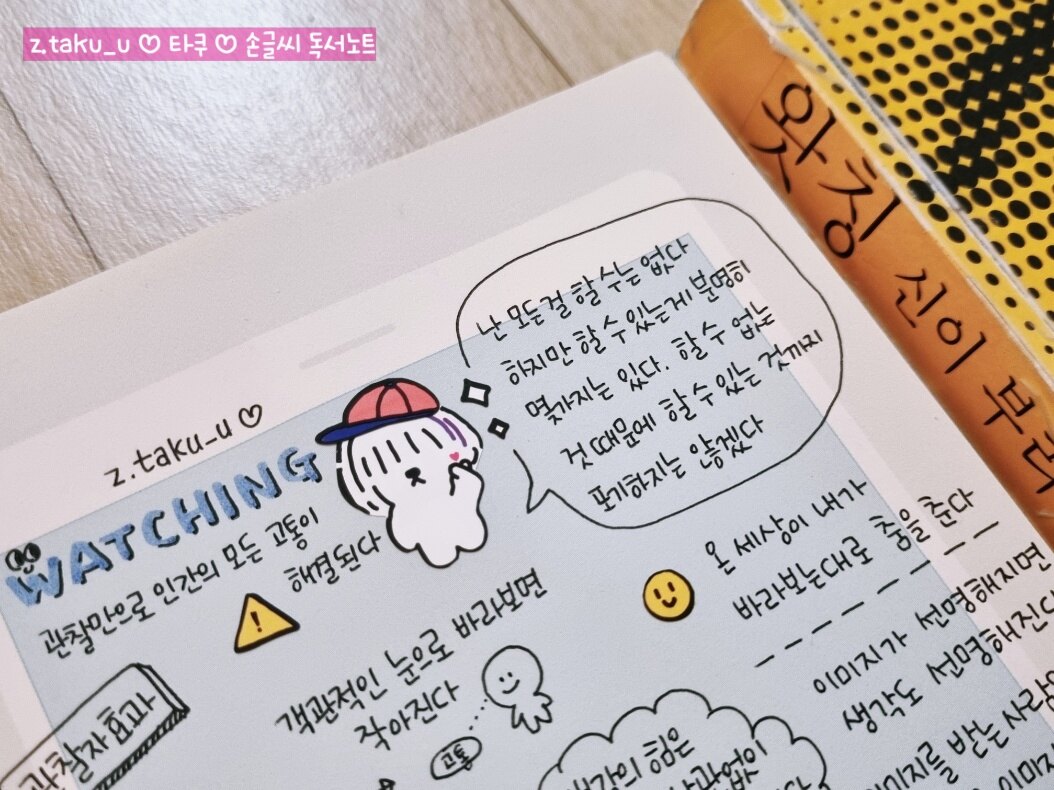 z.taku_u ♡ 타쿠 ♡ 손글씨 독서노트
왓칭 신이 부
z.taku_u ♡
WATCHING
관찰만으로 인간의 모든 고통이
해결된다
난 모든걸 할 수는 없다
하지만 할 수 있는게 분명히
몇가지는 있다. 할 수 없는
것 때문에 할 수 있는 것까지
포기하지는 않겠다
관찰자 효과
객관적인 눈으로 바라보면
작아진다
고통
온 세상이 내가
바라보는대로 춤을 춘다
이미지가 선명해지면
생각도 선명해진다
생각의 힘은
상관없이
이미지를 받는 사람
이미지